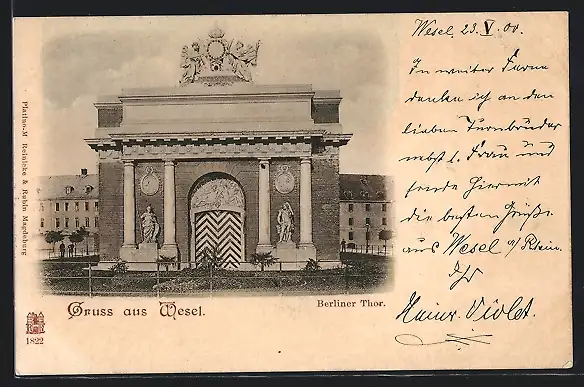 Wesel, 23. V. 00.
In weiter Ferne
denke ich an den
lieben Turnbruder
nebst l. Frau und
sende hiermit
die besten Grüße
aus Wesel a/Rhein.
Ihr
Heinr. Violet.
Platino-M Reinicke & Rubin Magdeburg
Gruss aus Wesel.
Berliner Thor.
1822